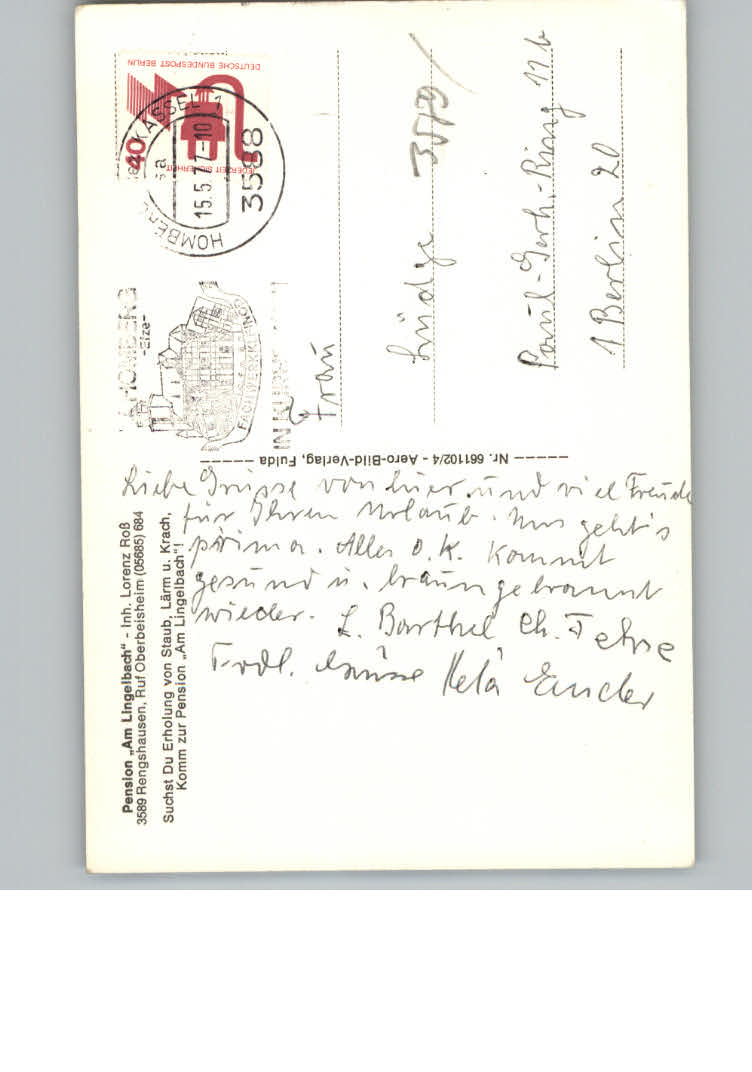 Pension „Am Lingelbach“ - Inh. Lorenz Roß
3589 Rengshausen, Ruf Oberbeisheim (05685) 684
Suchst Du Erholung von Staub, Lärm u. Krach,
Komm zur Pension „Am Lingelbach“!
Liebe Grüsse von hier und viel Freude
für Ihren Urlaub. Uns geht's
prima. Alles o.K. Kommt
gesund u. braungebrannt
wieder. L. Barthel Ch. Fehse
Frdl. Grüsse
Nr. 661102/4 - Aero-Bild-Verlag, Fulda
DEUTSCHE BUNDESPOST BERLIN
40
JEDERZEIT SICHERHEIT
HOMBERG KASSEL 1
15.5.77-10
3588
HOMBERG
-Efze-
FACHWERK
IN KURHESSEN
Frau
Lüdge
3579/
Paul-Gerh.-Ring 11b
1 Berlin 20